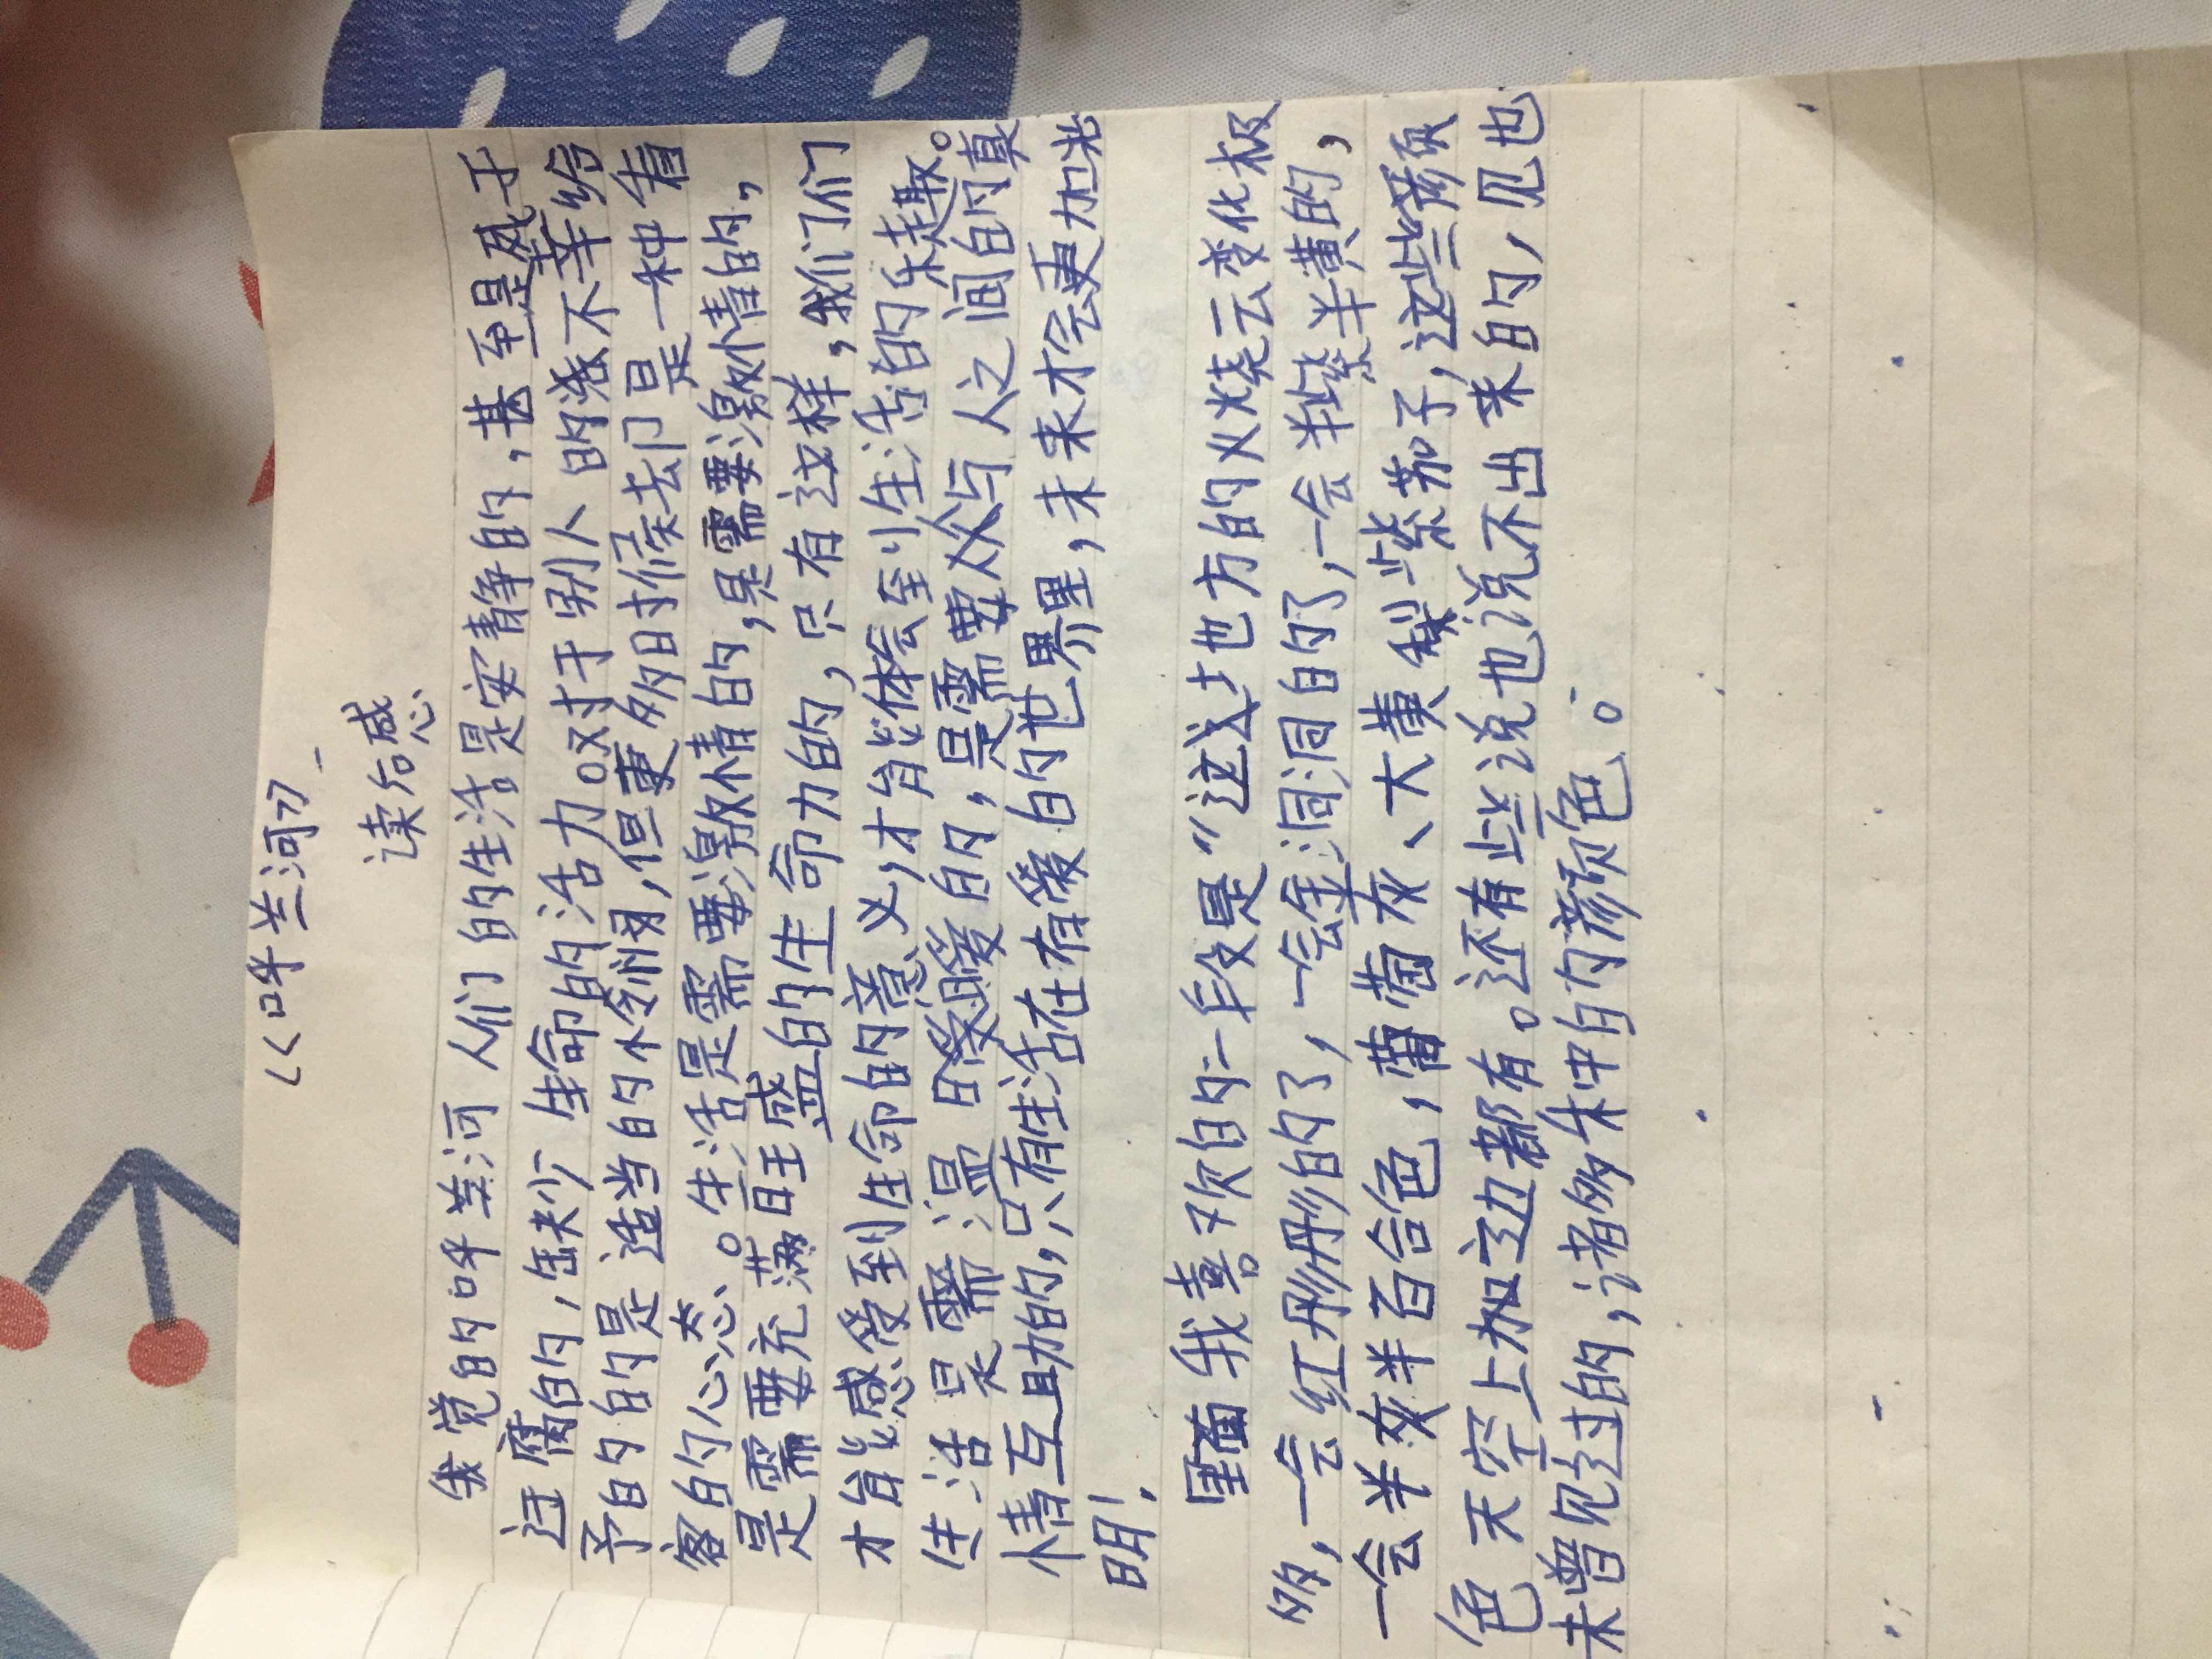 《呼兰河》
读后感
我觉的呼兰河人们的生活是安静的，甚至是是于
过腐的，缺少生命的活力。对于别人的残不幸给
予的的是适当的怜悯，但更多时候却是一种看
客的心态。生活是需要激情的，是需要激情的，
是需要充满旺盛的生命力的，只有这样，我们们
才能感受到生命的意义，才能体会到生活的乐趣。
生活是需温暖的，是需要人与人之间的真
情互助的，只有生活在有爱的世界里，未来才会更加光
明！
里面我喜欢的一段是"这地方的火烧云变化极
多，一会红彤彤的了，一会金洞洞的了，一会半紫半黄的，
一会半灰半百合色，葡萄灰、大黄梨紫茄子，这些颜
色天空上加边都有。还有些说也说不出来的，见也
未曾见过的，诸多朱中的颜色。